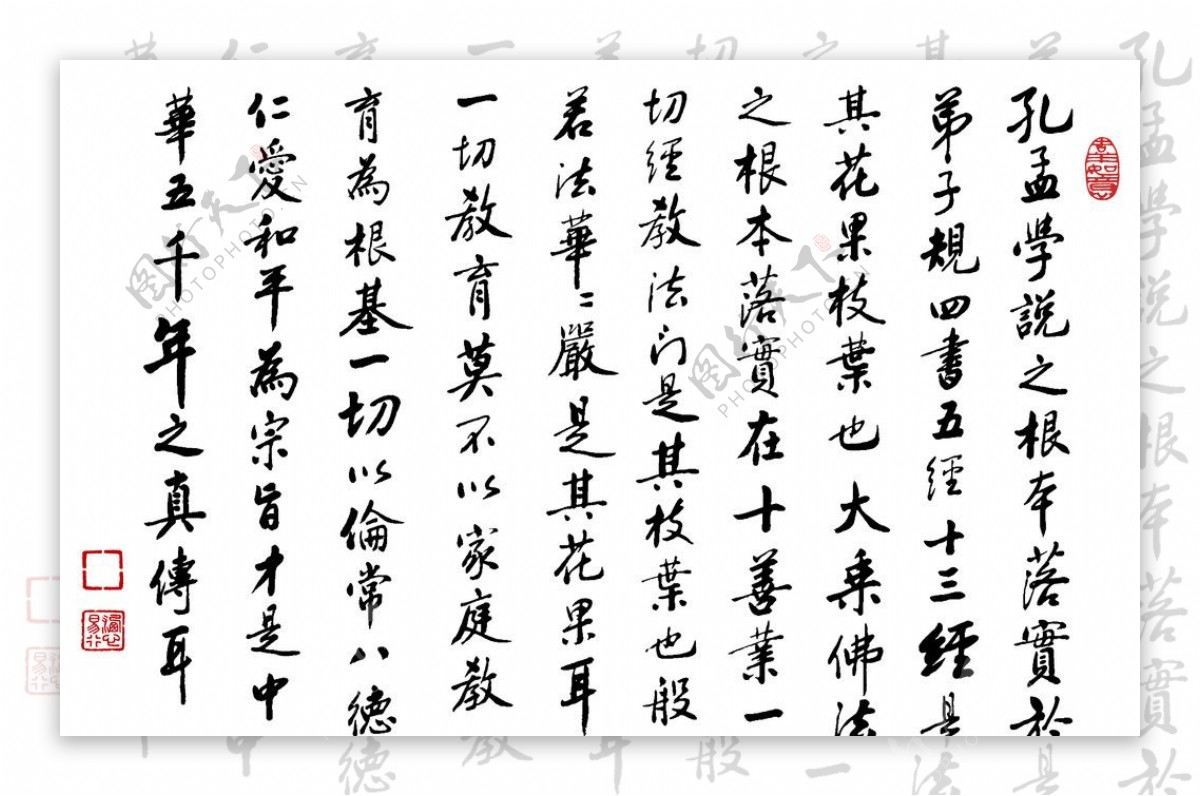 孔孟學說之根本落實於
弟子規四書五經十三經是
其花果枝葉也大乘佛法
之根本落實在十善業一
切經教法門是其枝葉也般
若法華〻嚴是其花果耳
一切教育莫不以家庭教
育為根基一切以倫常八德
仁愛和平為宗旨才是中
華五千年之真傳耳